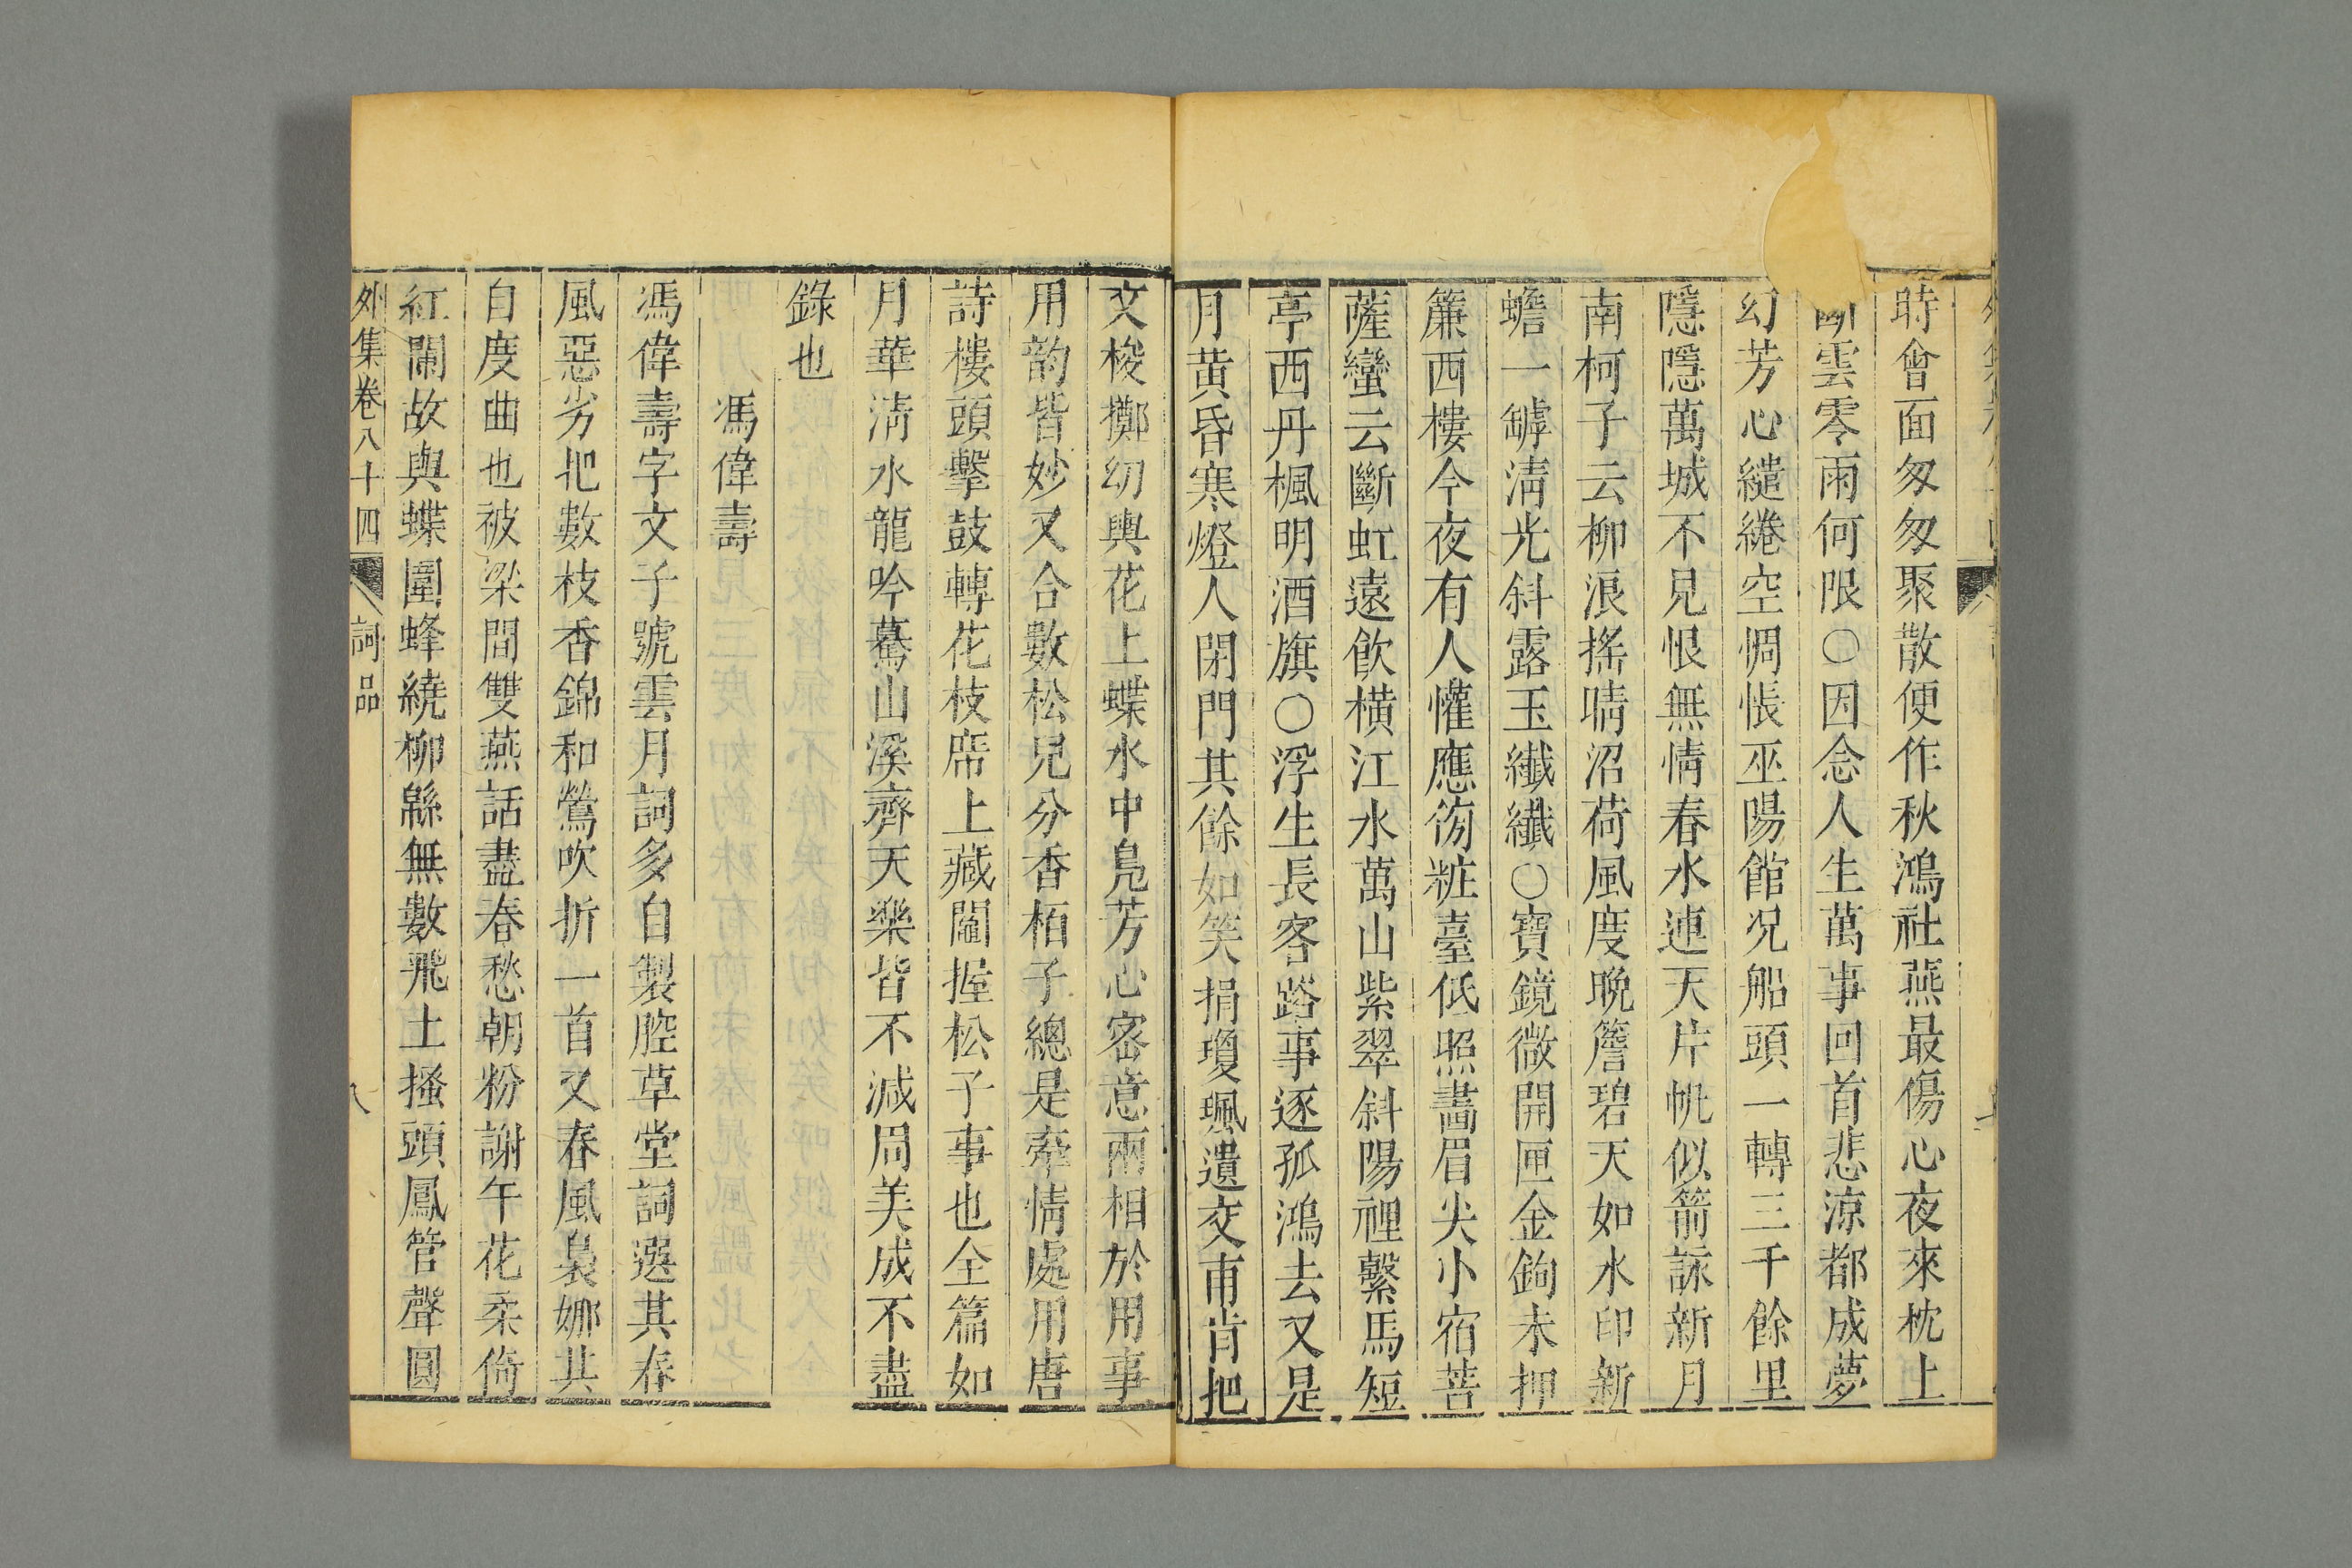 時會面匆匆聚散便作秋鴻社燕最傷心夜來枕上
斷雲零雨何限○因念人生萬事回首悲涼都成夢
幻芳心繾綣空惆悵巫陽館况船頭一轉三千餘里
隱隱萬城不見恨無情春水連天片帆似箭詠新月
南柯子云柳浪搖晴沼荷風度晚簷碧天如水印新
蟾一罅清光斜露玉纖纖○寶鏡微開匣金鉤未押
簾西樓今夜有人懽應傍粧臺低照畵眉尖小宿菩
薩蠻云斷虹遠飲橫江水萬山紫翠斜陽裡繫馬短
亭西丹楓明酒旗○浮生長客路事逐孤鴻去又是
月黄昏寒燈人閉門其餘如笑捐瓊珮遺交甫肯把
文梭擲幼輿花上蝶水中鳧芳心密意兩相於用事
用韵皆妙又合數松兒分香栢子總是牽情處用唐
詩樓頭擊鼓轉花枝席上藏鬮握松子事也全篇如
月華清水龍吟驀山溪齊天樂皆不减周美成不盡
錄也
馮偉壽
馮偉壽字文子號雲月詞多自製腔草堂詞選其春
風惡劣把數枝香錦和鶯吹折一首又春風裊娜其
自度曲也被梁間雙燕話盡春愁朝粉謝午花柔倚
紅闌故與蝶圍蜂繞柳緜無數飛土搔頭鳳管聲圓
外集卷八十四 詞品 八